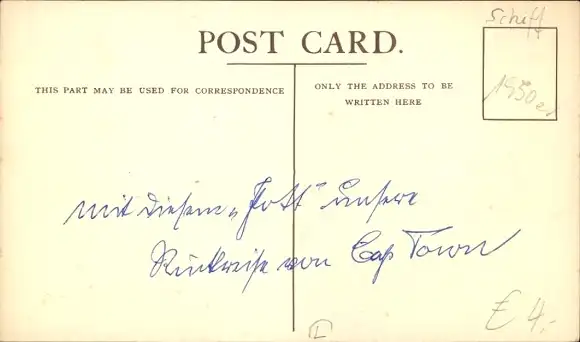 Schiff
POST CARD.
THIS PART MAY BE USED FOR CORRESPONDENCE
ONLY THE ADDRESS TO BE
WRITTEN HERE
1930er
mit diesem „Pott“ unsere
Rückreise von Cap Town
L
€ 4,-